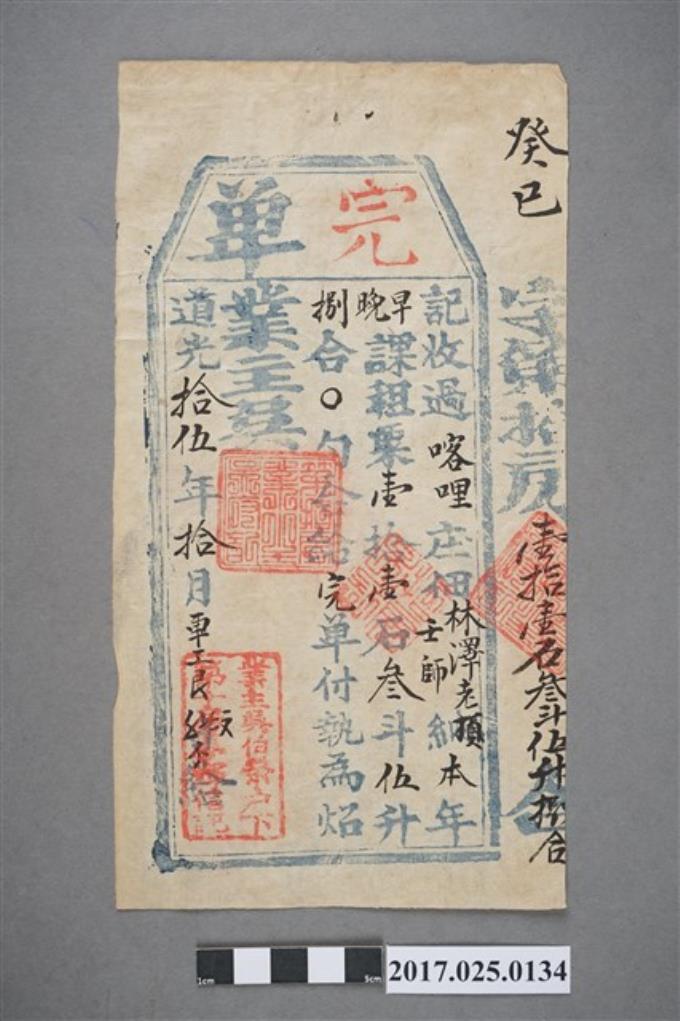 癸巳
壹拾壹石叁斗伍升捌合
完單
記收過喀哩庄佃林澤老頂壬師納本年
早晚課租粟壹拾壹石叁斗伍升
捌合〇勺合給完單付執為炤
業主吳
道光拾伍年拾月
業主吳伯榮戶下
2017.025.0134
1cm
5cm